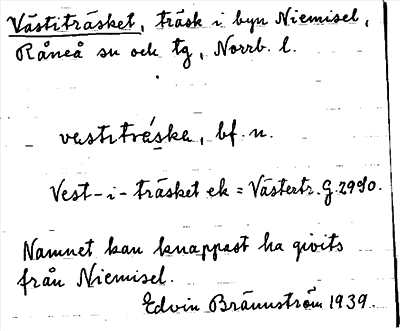 Västiträsket, träsk i byn Niemisel,
Råneå sn och tg, Norrb. l.
vestitráska, bf. n.
Vest-i-träsket ek = Västertr. G. 2990.
Namnet kan knappast ha givits
från Niemisel.
Edvin Brännström 1939.